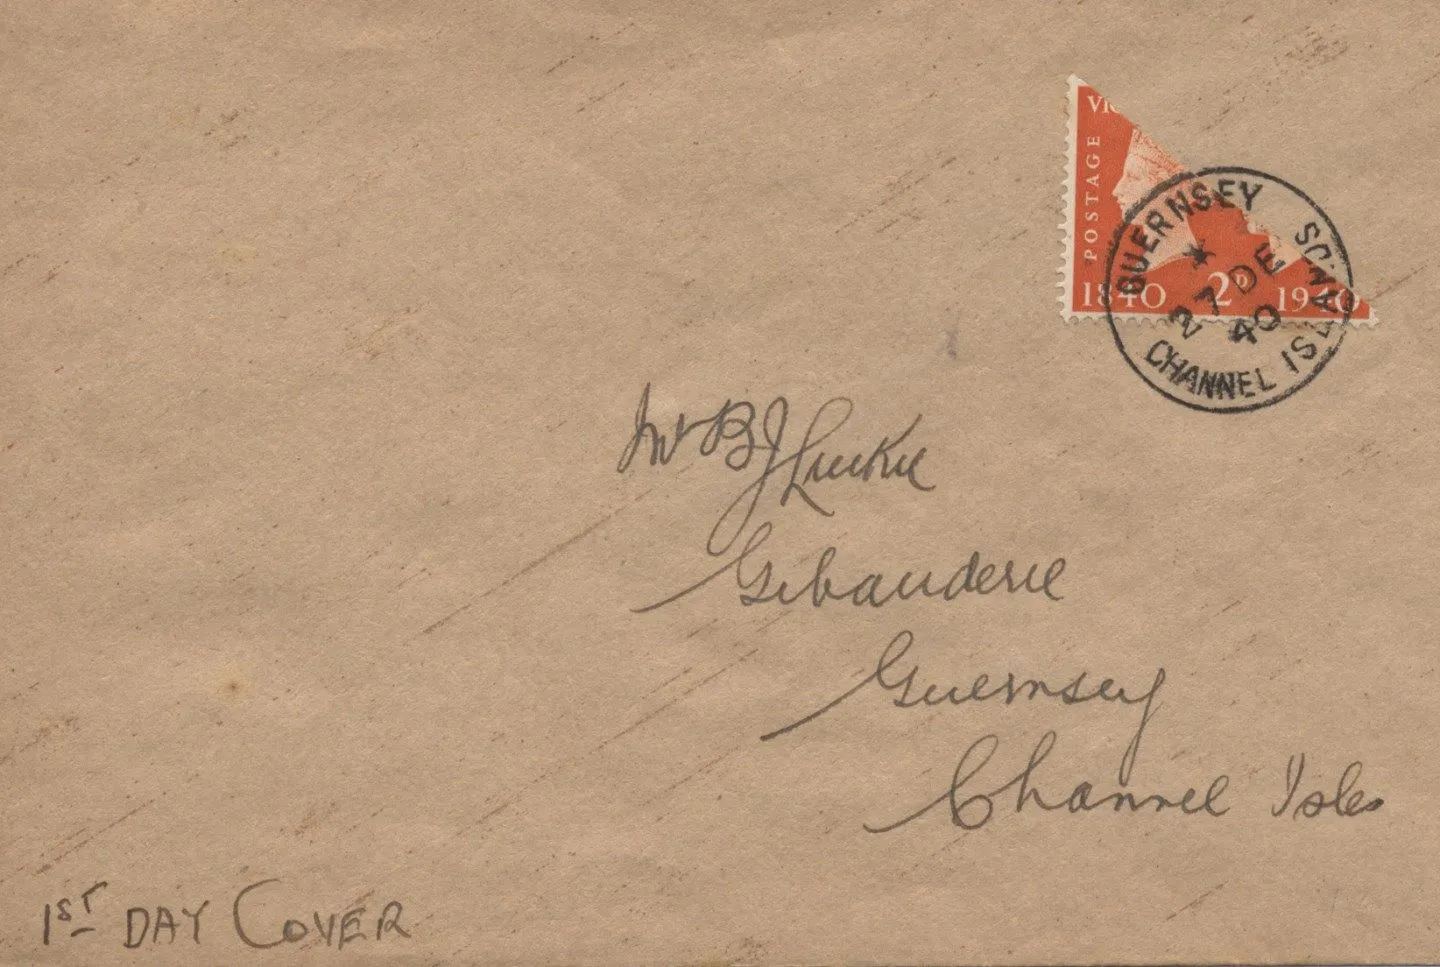 VIC
POSTAGE
1840 2D 1940
GUERNSEY
27 DE
40
CHANNEL ISLANDS
Mr B J Luckie
Gibauderie
Guernsey
Channel Isles
1ST DAY COVER